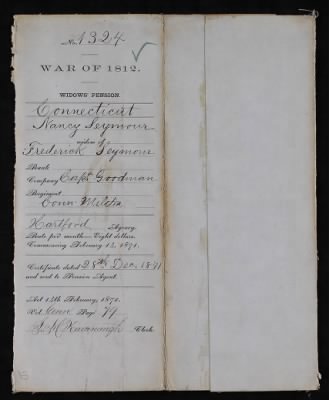 No. 1324
WAR OF 1812.
WIDOWS' PENSION.
Connecticut
Nancy Seymour
widow of
Frederick Seymour
Rank
Company Capt Goodman
Regiment
Conn Militia
Hartford Agency
Rate per month—Eight dollars.
Commencing February 14, 1871.
Certificate dated 28th Dec. 1871
and sent to Pension Agent.
Act 14th February, 1871.
Vol. Page 79
Kavanaugh Clerk.